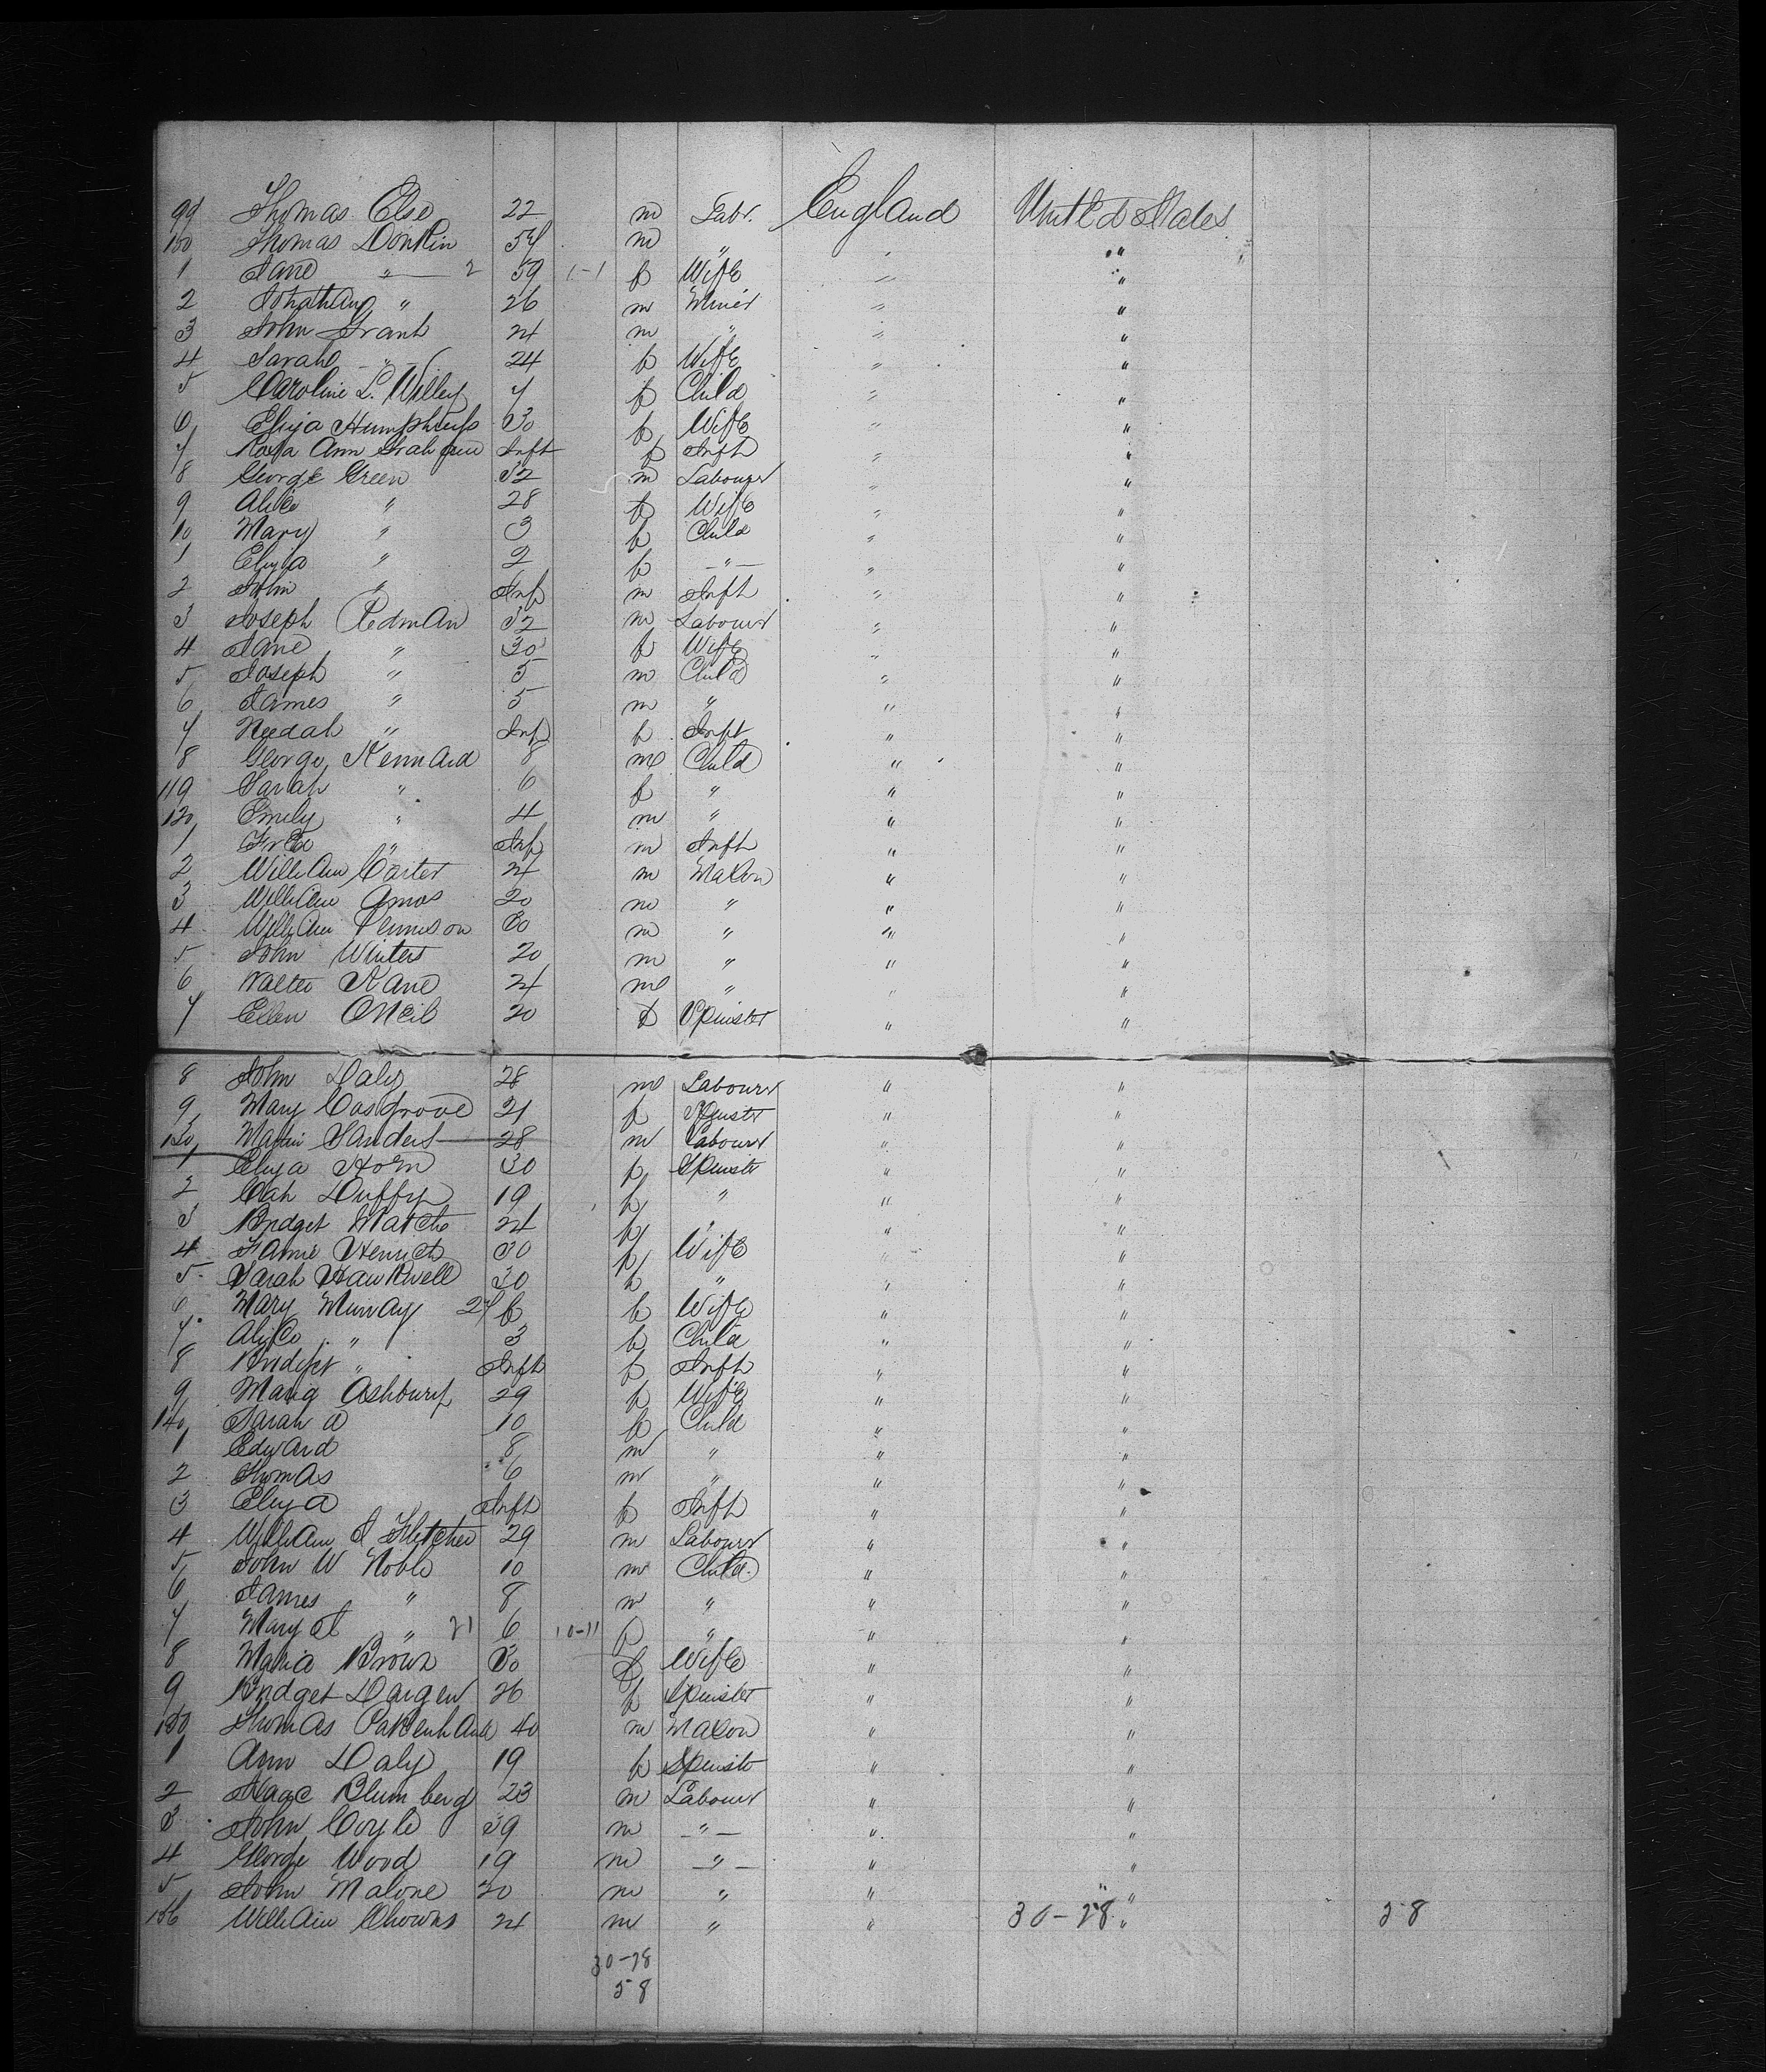 99 Thomas Else 22 m Labr. England United States
100 Thomas Donkin 54 m " " "
1 Jane " 2 59 1-1 f Wife " "
2 Johathan " 26 m Miner " "
3 John Grant 24 m " " "
4 Sarah " 24 f Wife " "
5 Caroline L. Willey 7 f Child " "
6 Eliza Humphreys 30 f Wife " "
7 Rosa Ann Inft f Inft " "
8 George Green 32 m Labourer " "
9 Alice " 28 f Wife " "
10 Mary " 3 f Child " "
1 Eliza " 2 f " " "
2 John " Inf m Inft " "
3 Joseph Redman 32 m Labourer " "
4 Jane " 30 f Wife " "
5 Joseph " 5 m Child " "
6 James " 5 m " " "
7 " Inf f Inft " "
8 George Kennard 8 m Child " "
119 Sarah " 6 f " " "
120 Emily " 4 m " " "
1 Fred " Inf m Inft " "
2 William Carter 24 m Mason " "
3 William Amos 20 m " " "
4 William Tennison 30 m " " "
5 John Winters 20 m " " "
6 Walter Kane 24 m " " "
7 Ellen ONeil 20 f Spinster " "
8 John Daly 28 m Labourer " "
9 Mary Cosgrove 21 f Spinster " "
130 Martin Sanders 28 m Labourer " "
1 Eliza Horn 30 f Spinster " "
2 Cath Duffy 19 f " " "
3 Bridget 24 f " " "
4 30 f Wife " "
5 Sarah Hawkwell 30 f " " "
6 Mary Murray 24 f f Wife " "
7 Alice " 3 f Child " "
8 Bridget " Inft f Inft " "
9 Maria Ashbury 29 f Wife " "
140 Sarah A 10 f Child " "
1 Edward 8 m " " "
2 Thomas 6 m " " "
3 Eliza Inft f Inft " "
4 William J Fletcher 29 m Labourer " "
5 John W Noble 10 m Child " "
6 James " 8 m " " "
7 Mary J " 21 6 10-11 f " " "
8 Maria Brown 30 f Wife " "
9 Bridget Dargen 26 f Spinster " "
150 Thomas Pakenham 40 m Mason " "
1 Ann Daly 19 f Spinster " "
2 Isaac Blumberg 23 m Labourer " "
3 John Coyle 39 m " " "
4 George Wood 19 m " " "
5 John Malone 20 m " " "
156 William Chowns 24 m " " 30-28 " 58
30-28
58